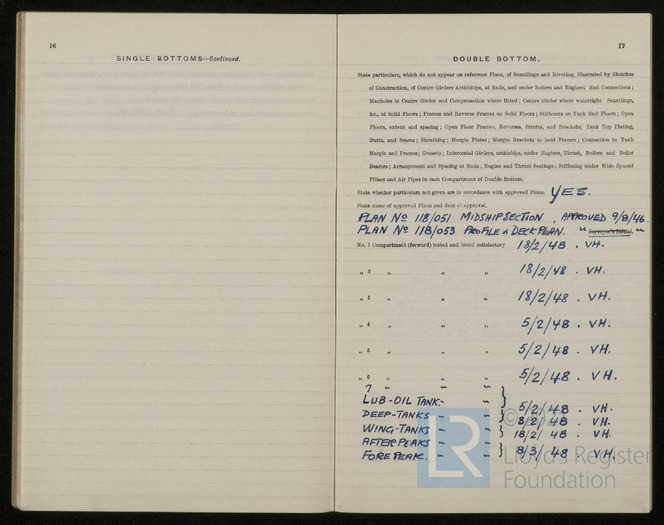 16
SINGLE BOTTOMS—Continued.
17
DOUBLE BOTTOM.
State particulars, which do not appear on reference Plans, of Scantlings and Riveting, illustrated by Sketches
of Construction, of Centre Girders Amidships, at Ends, and under Boilers and Engines; End Connections;
Manholes in Centre Girder and Compensation where fitted; Centre Girder where watertight Scantlings,
&c., of Solid Floors; Frames and Reverse Frames on Solid Floors; Stiffeners on Tank End Floors; Open
Floors, extent and spacing; Open Floor Frames, Reverses, Struts, and Brackets; Tank Top Plating,
Butts, and Seams; Sheathing; Margin Plates; Margin Brackets to hold Frames; Connection to Tank
Margin and Frames; Gussets; Intercostal Girders, amidships, under Engines, Thrust, Boilers and Boiler
Bearers; Arrangement and Spacing at Ends; Engine and Thrust Seatings; Stiffening under Wide Spaced
Pillars and Air Pipes in each Compartment of Double Bottom.
State whether particulars not given are in accordance with approved Plans. YES.
State name of approved Plans and date of approval.
PLAN No 118/051 MIDSHIP SECTION, APPROVED 9/8/46.
PLAN No 118/053 PROFILE & DECK PLAN. " Surveyor's Initial. "
No. 1 Compartment (forward) tested and found satisfactory 18/2/48. VH.
" 2 " " " 18/2/48. VH.
" 3 " " " 18/2/48. VH.
" 4 " " " 5/2/48. VH.
" 5 " " " 5/2/48. VH.
" 6 " " " 5/2/48. VH.
7 " " "
LUB-OIL TANK.- " } 5/2/48. VH.
DEEP-TANKS " " 8/2/48. VH.
WING-TANKS " " } 18/2/48. VH.
AFTER PEAKS " "
FORE PEAK. " " } 8/3/48. VH.
LR
Lloyd's Register
Foundation